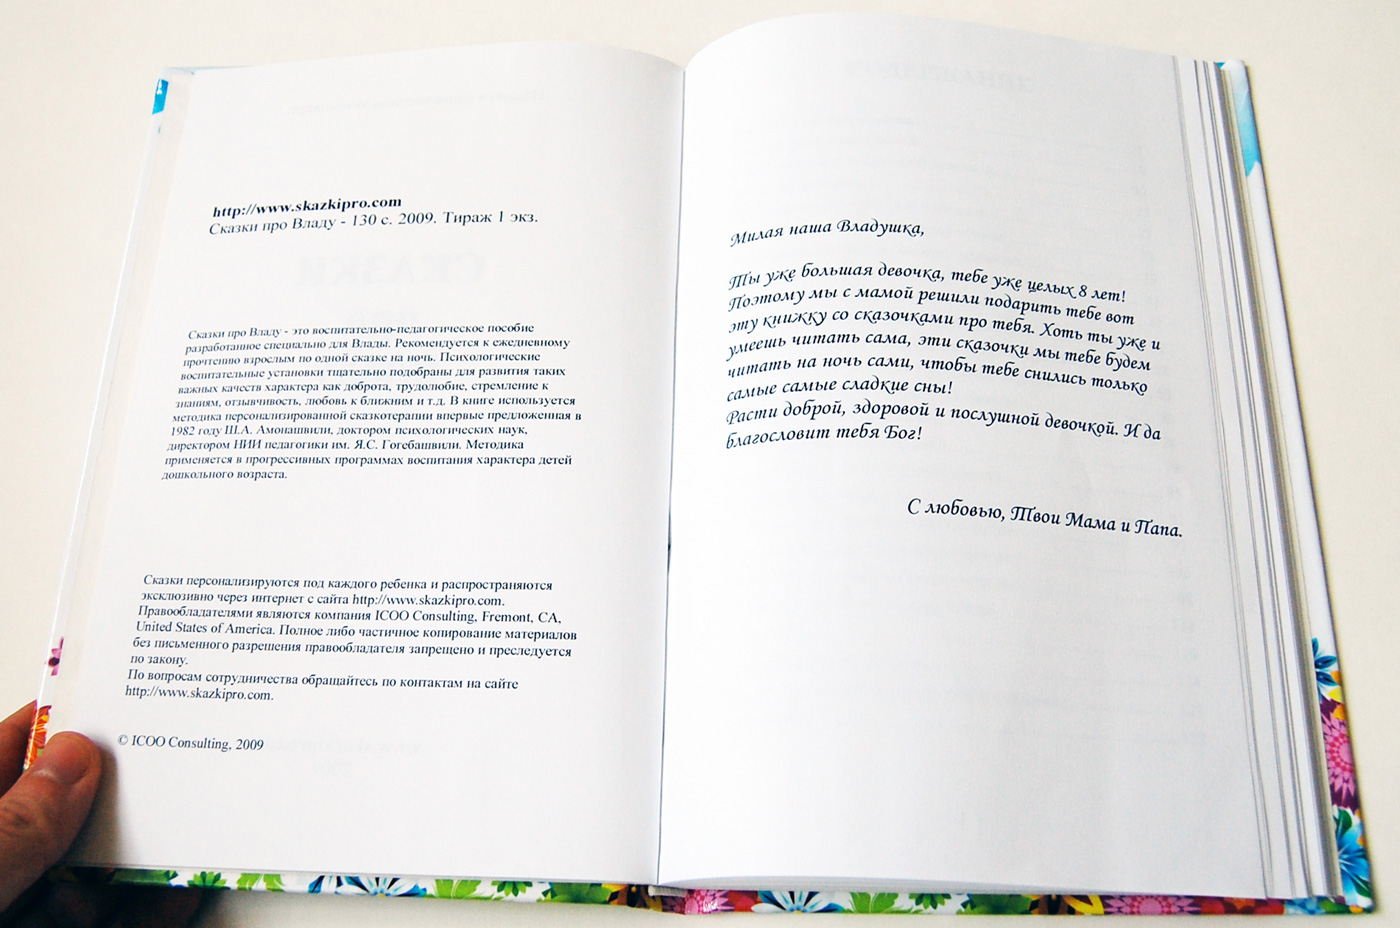 http://www.skazkipro.com
Сказки про Владу - 130 с. 2009. Тираж 1 экз.
Сказки про Владу - это воспитательно-педагогическое пособие
разработанное специально для Влады. Рекомендуется к ежедневному
прочтению взрослым по одной сказке на ночь. Психологические
воспитательные установки тщательно подобраны для развития таких
важных качеств характера как доброта, трудолюбие, стремление к
знаниям, отзывчивость, любовь к ближним и т.д. В книге используется
методика персонализированной сказкотерапии впервые предложенная в
1982 году Ш.А. Амонашвили, доктором психологических наук,
директором НИИ педагогики им. Я.С. Гогебашвили. Методика
применяется в прогрессивных программах воспитания характера детей
дошкольного возраста.
Сказки персонализируются под каждого ребенка и распространяются
эксклюзивно через интернет с сайта http://www.skazkipro.com.
Правообладателями являются компания ICOO Consulting, Fremont, CA,
United States of America. Полное либо частичное копирование материалов
без письменного разрешения правообладателя запрещено и преследуется
по закону.
По вопросам сотрудничества обращайтесь по контактам на сайте
http://www.skazkipro.com.
© ICOO Consulting, 2009
Милая наша Владушка,
Ты уже большая девочка, тебе уже целых 8 лет!
Поэтому мы с мамой решили подарить тебе вот
эту книжку со сказочками про тебя. Хоть ты уже и
умеешь читать сама, эти сказочки мы тебе будем
читать на ночь сами, чтобы тебе снились только
самые самые сладкие сны!
Расти доброй, здоровой и послушной девочкой. И да
благословит тебя Бог!
С любовью, Твои Мама и Папа.